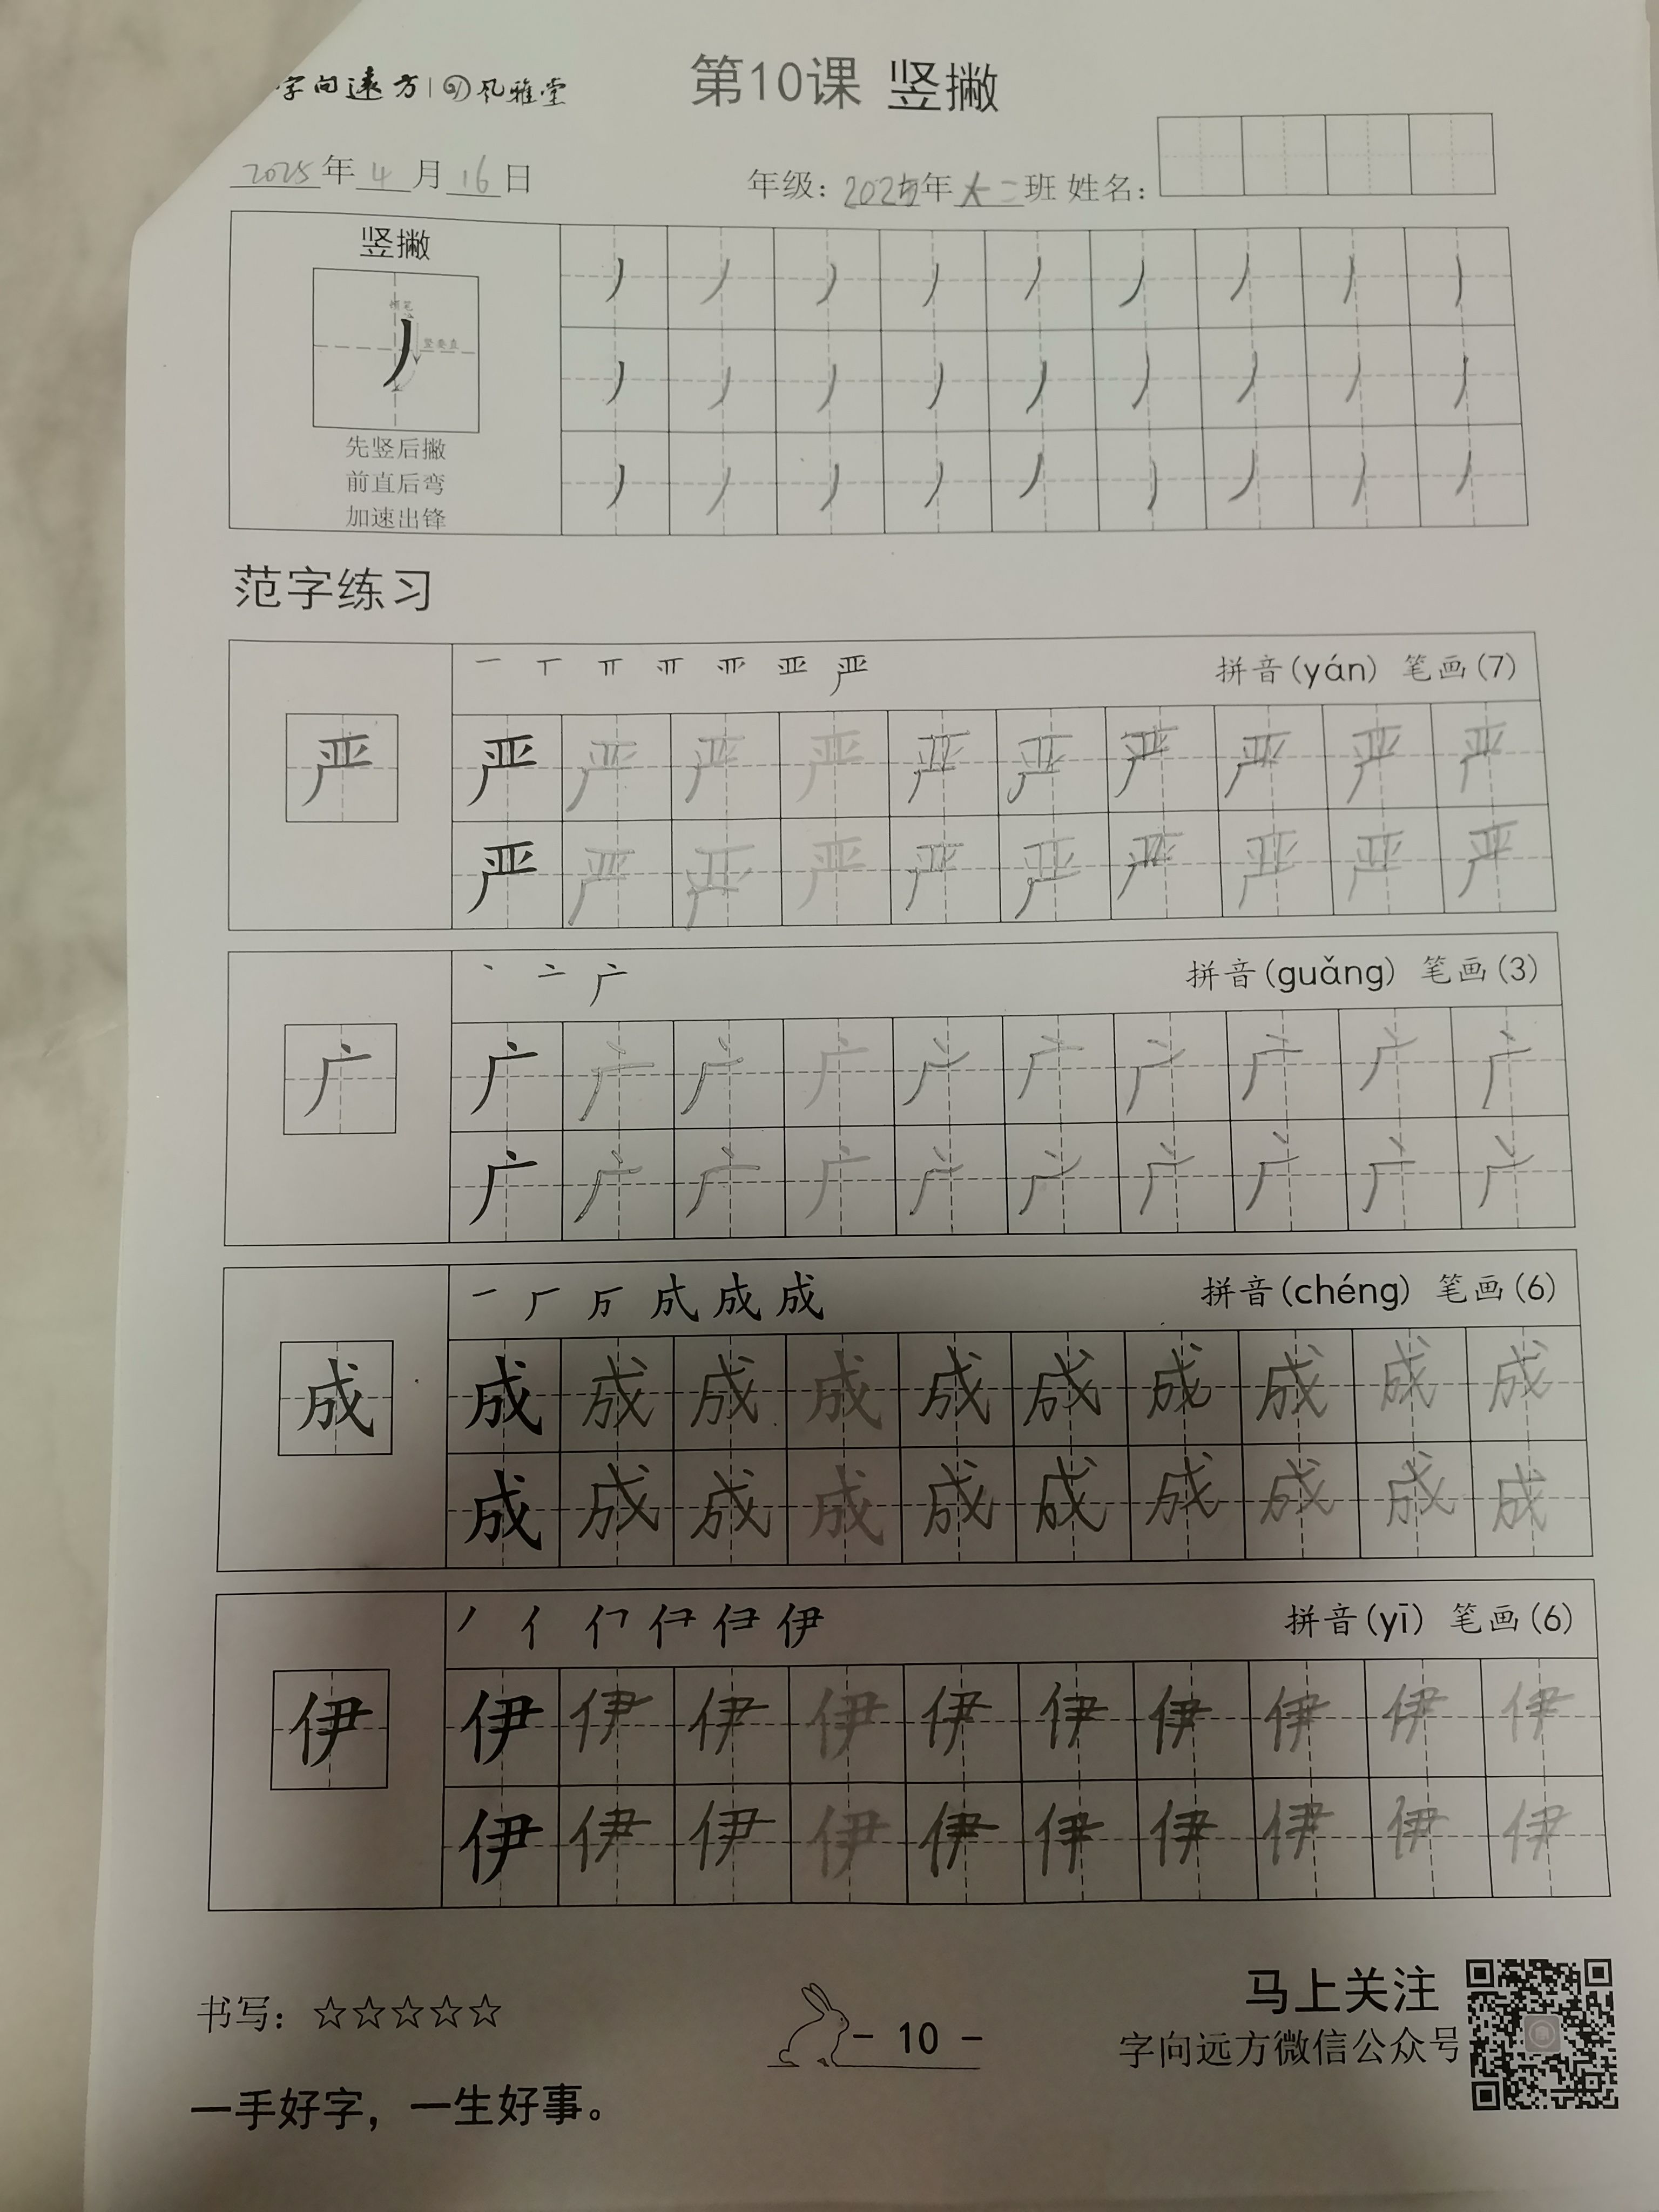 字向遠方 | 风雅堂
第10课 竖撇
2025年4月16日
年级：2025年大二班 姓名：
竖撇
顿笔
竖要直
先竖后撇
前直后弯
加速出锋
丿 丿 丿 丿 丿 丿 丿 丿 丿
丿 丿 丿 丿 丿 丿 丿 丿 丿
丿 丿 丿 丿 丿 丿 丿 丿 丿
范字练习
拼音(yán) 笔画(7)
严
严 严 严 严 严 严 严 严 严 严
严 严 严 严 严 严 严 严 严 严
拼音(guǎng) 笔画(3)
广
广 广 广 广 广 广 广 广 广 广
广 广 广 广 广 广 广 广 广 广
拼音(chéng) 笔画(6)
成
成 成 成 成 成 成 成 成 成 成
成 成 成 成 成 成 成 成 成 成
拼音(yī) 笔画(6)
伊
伊 伊 伊 伊 伊 伊 伊 伊 伊 伊
伊 伊 伊 伊 伊 伊 伊 伊 伊 伊
书写：☆☆☆☆☆
- 10 -
马上关注
字向远方微信公众号
一手好字，一生好事。